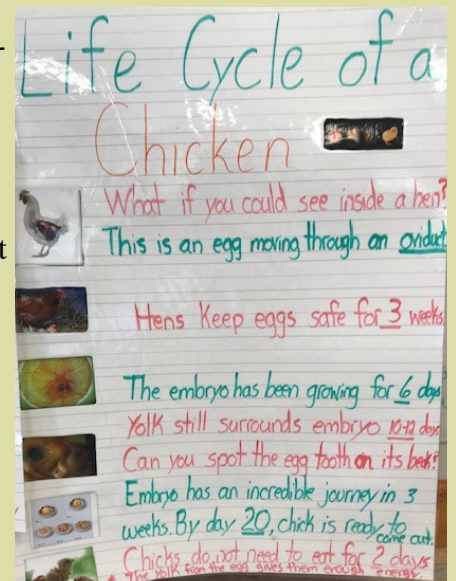 Life Cycle of a
Chicken
What if you could see inside a hen?
This is an egg moving through an oviduct
t
Hens Keep eggs safe for 3 weeks
The embryo has been growing for 6 days
Yolk still surrounds embryo 10-12 days
Can you spot the egg tooth on its beak?
Embryo has an incredible journey in 3
weeks. By day 20, chick is ready to
come out.
Chicks do not need to eat for 2 days
* The yolk from the egg gives them enough energy.